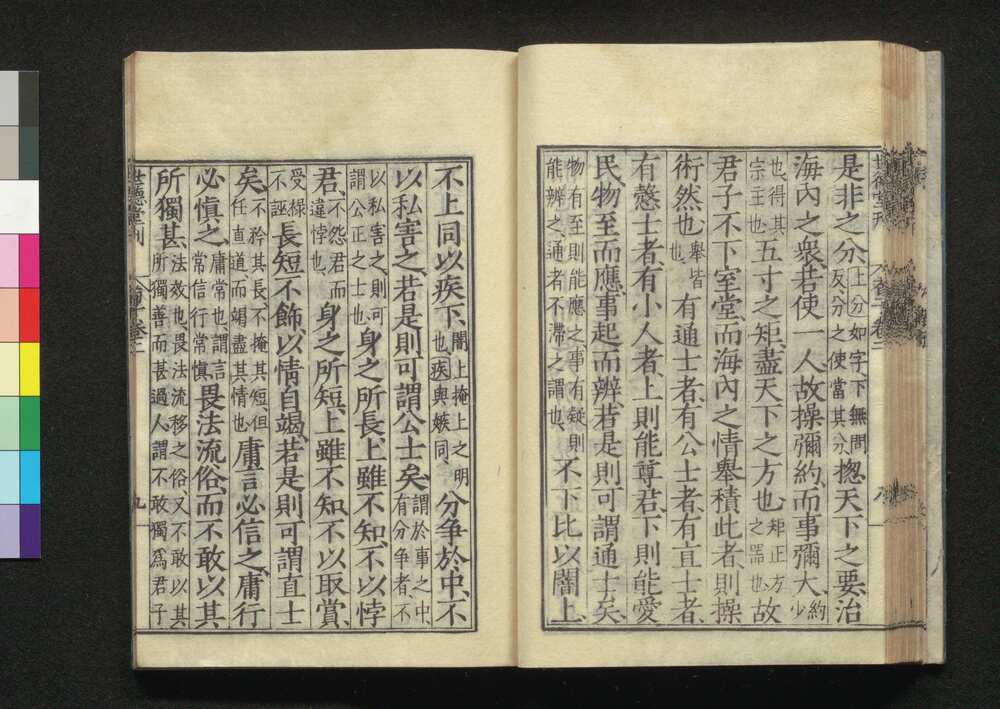 是非之分、上分如字下無問反分之使當其分揔天下之要、治
海內之衆、若使一人、故操彌約、而事彌大、約少
也、得其宗主也、五寸之矩、盡天下之方也、矩正方之器也、故
君子不下室堂、而海內之情舉積此者、則操
術然也、舉皆也有通士者、有公士者、有直士者、
有愨士者、有小人者、上則能尊君、下則能愛
民、物至而應、事起而辨、若是則可謂通士矣、
物有至則能應之事有疑則能辨之、通者不滯之謂也、不下比以闇上、
不上同以疾下、闇上掩上之明也、疾與嫉同、分爭於中、不
以私害之、若是則可謂公士矣、謂於事之中、有分爭者、不
以私害之、則可謂公正之士也、身之所長、上雖不知、不以悖
君、不怨君而違悖也、身之所短、上雖不知、不以取賞、
受祿不誣、長短不飾、以情自竭、若是則可謂直士
矣、不矜其長、不掩其短、但任直道、而竭盡其情也、庸言必信之、庸行
必愼之、庸常也、謂言常信行常愼畏法流俗、而不敢以其
所獨甚、法效也、畏法流移之俗、又不敢以其所獨善而甚過人謂不敢獨爲君子
世德堂刊
卷二
九
世德堂刊
卷二